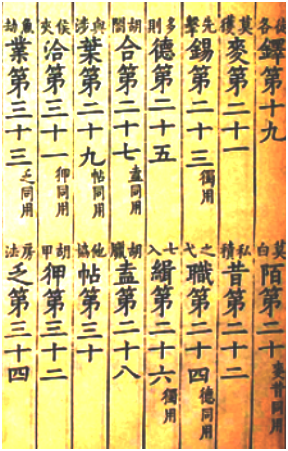 徒各鐸第十九 莫白陌第二十麥昔同用
莫獲麥第二十一 私積昔第二十二
先擊錫第二十三獨用 之弋職第二十四德同用
多則德第二十五 七入緝第二十六獨用
胡閤合第二十七盍同用 胡臘盍第二十八
與涉葉第二十九帖同用 他協帖第三十
侯夾洽第三十一狎同用 胡甲狎第三十二
魚劫業第三十三乏同用 房法乏第三十四